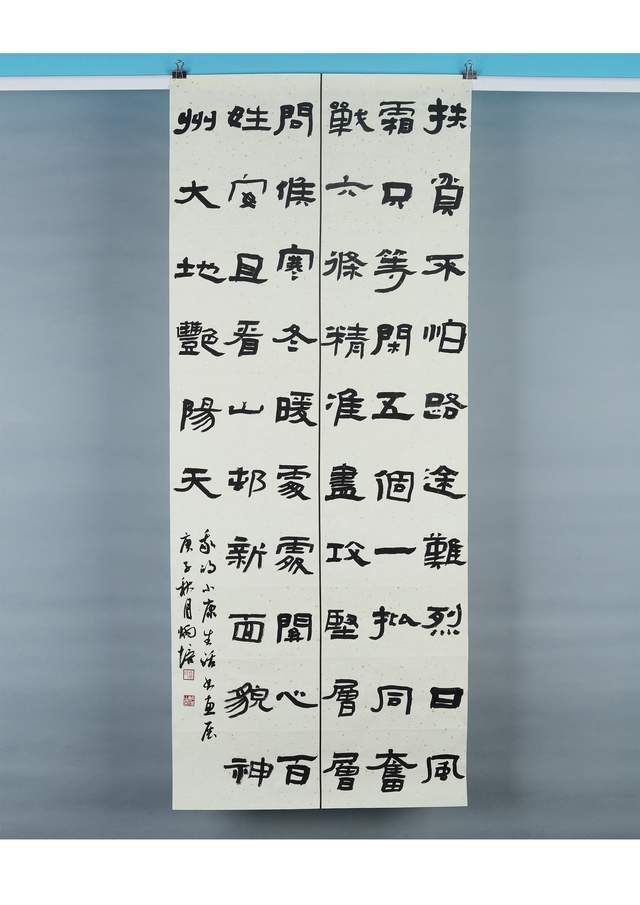 扶貧不怕路途難烈日風
霜只等閑五個一批同奮
戰六條精准盡攻堅層層
問候寒冬暖處處關心百
姓安且看山邨新面貌神
州大地艷陽天
我的小康生活
庚子秋月炳